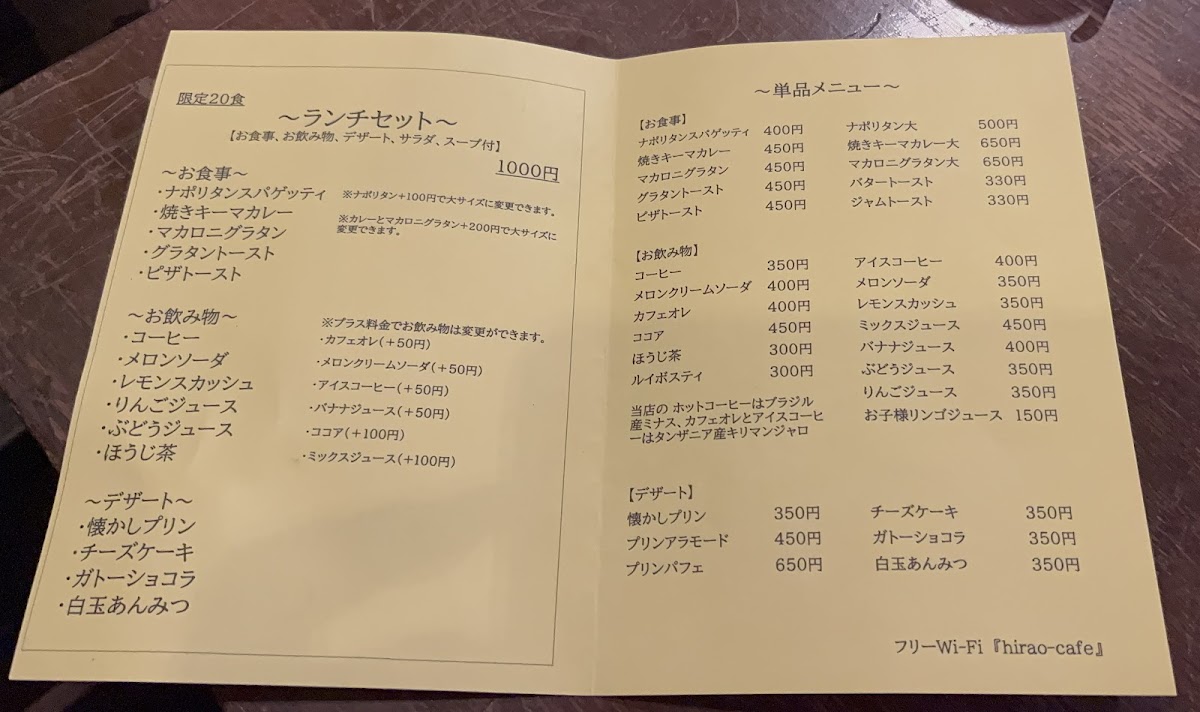 限定20食
～ランチセット～
【お食事、お飲み物、デザート、サラダ、スープ付】
1000円
～お食事～
・ナポリタンスパゲッティ
・焼きキーマカレー
・マカロニグラタン
・グラタントースト
・ピザトースト
※ナポリタン+100円で大サイズに変更できます。
※カレーとマカロニグラタン+200円で大サイズに
変更できます。
～お飲み物～
・コーヒー
・メロンソーダ
・レモンスカッシュ
・りんごジュース
・ぶどうジュース
・ほうじ茶
※プラス料金でお飲み物は変更ができます。
・カフェオレ(+50円)
・メロンクリームソーダ(+50円)
・アイスコーヒー(+50円)
・バナナジュース(+50円)
・ココア(+100円)
・ミックスジュース(+100円)
～デザート～
・懐かしプリン
・チーズケーキ
・ガトーショコラ
・白玉あんみつ
～単品メニュー～
【お食事】
ナポリタンスパゲッティ 400円
焼きキーマカレー 450円
マカロニグラタン 450円
グラタントースト 450円
ピザトースト 450円
ナポリタン大 500円
焼きキーマカレー大 650円
マカロニグラタン大 650円
バタートースト 330円
ジャムトースト 330円
【お飲み物】
コーヒー 350円
メロンクリームソーダ 400円
カフェオレ 400円
ココア 450円
ほうじ茶 300円
ルイボスティ 300円
当店の ホットコーヒーはブラジル
産ミナス、カフェオレとアイスコーヒ
ーはタンザニア産キリマンジャロ
アイスコーヒー 400円
メロンソーダ 350円
レモンスカッシュ 350円
ミックスジュース 450円
バナナジュース 400円
ぶどうジュース 350円
りんごジュース 350円
お子様リンゴジュース 150円
【デザート】
懐かしプリン 350円
プリンアラモード 450円
プリンパフェ 650円
チーズケーキ 350円
ガトーショコラ 350円
白玉あんみつ 350円
フリーWi-Fi『hirao-cafe』